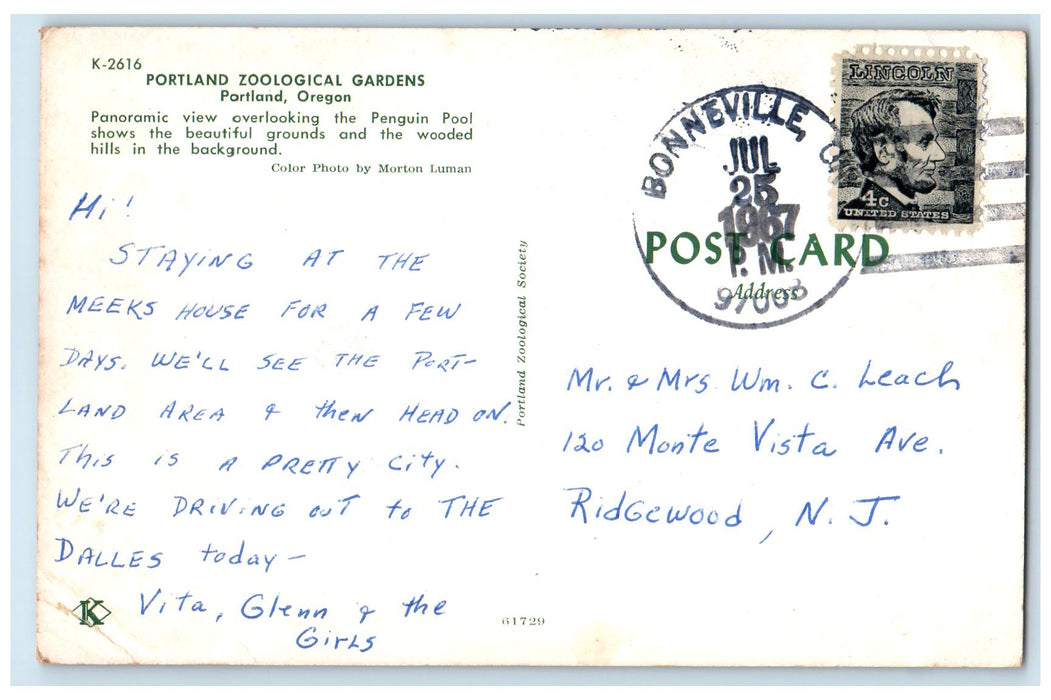 K-2616
PORTLAND ZOOLOGICAL GARDENS
Portland, Oregon
Panoramic view overlooking the Penguin Pool
shows the beautiful grounds and the wooded
hills in the background.
Color Photo by Morton Luman
Hi!
STAYING AT THE
MEEKS HOUSE FOR A FEW
DAYS. WE'LL SEE THE PORT-
LAND AREA & then HEAD ON.
This is A PRETTY City.
WE'RE DRIVING OUT to THE
DALLES today —
Vita, Glenn & the
Girls
K
61729
Portland Zoological Society
BONNEVILLE,
JUL
25
1967
P. M.
97008
LINCOLN
4c
UNITED STATES
POST CARD
Address
Mr. & Mrs Wm. C. Leach
120 Monte Vista Ave.
Ridgewood, N. J.